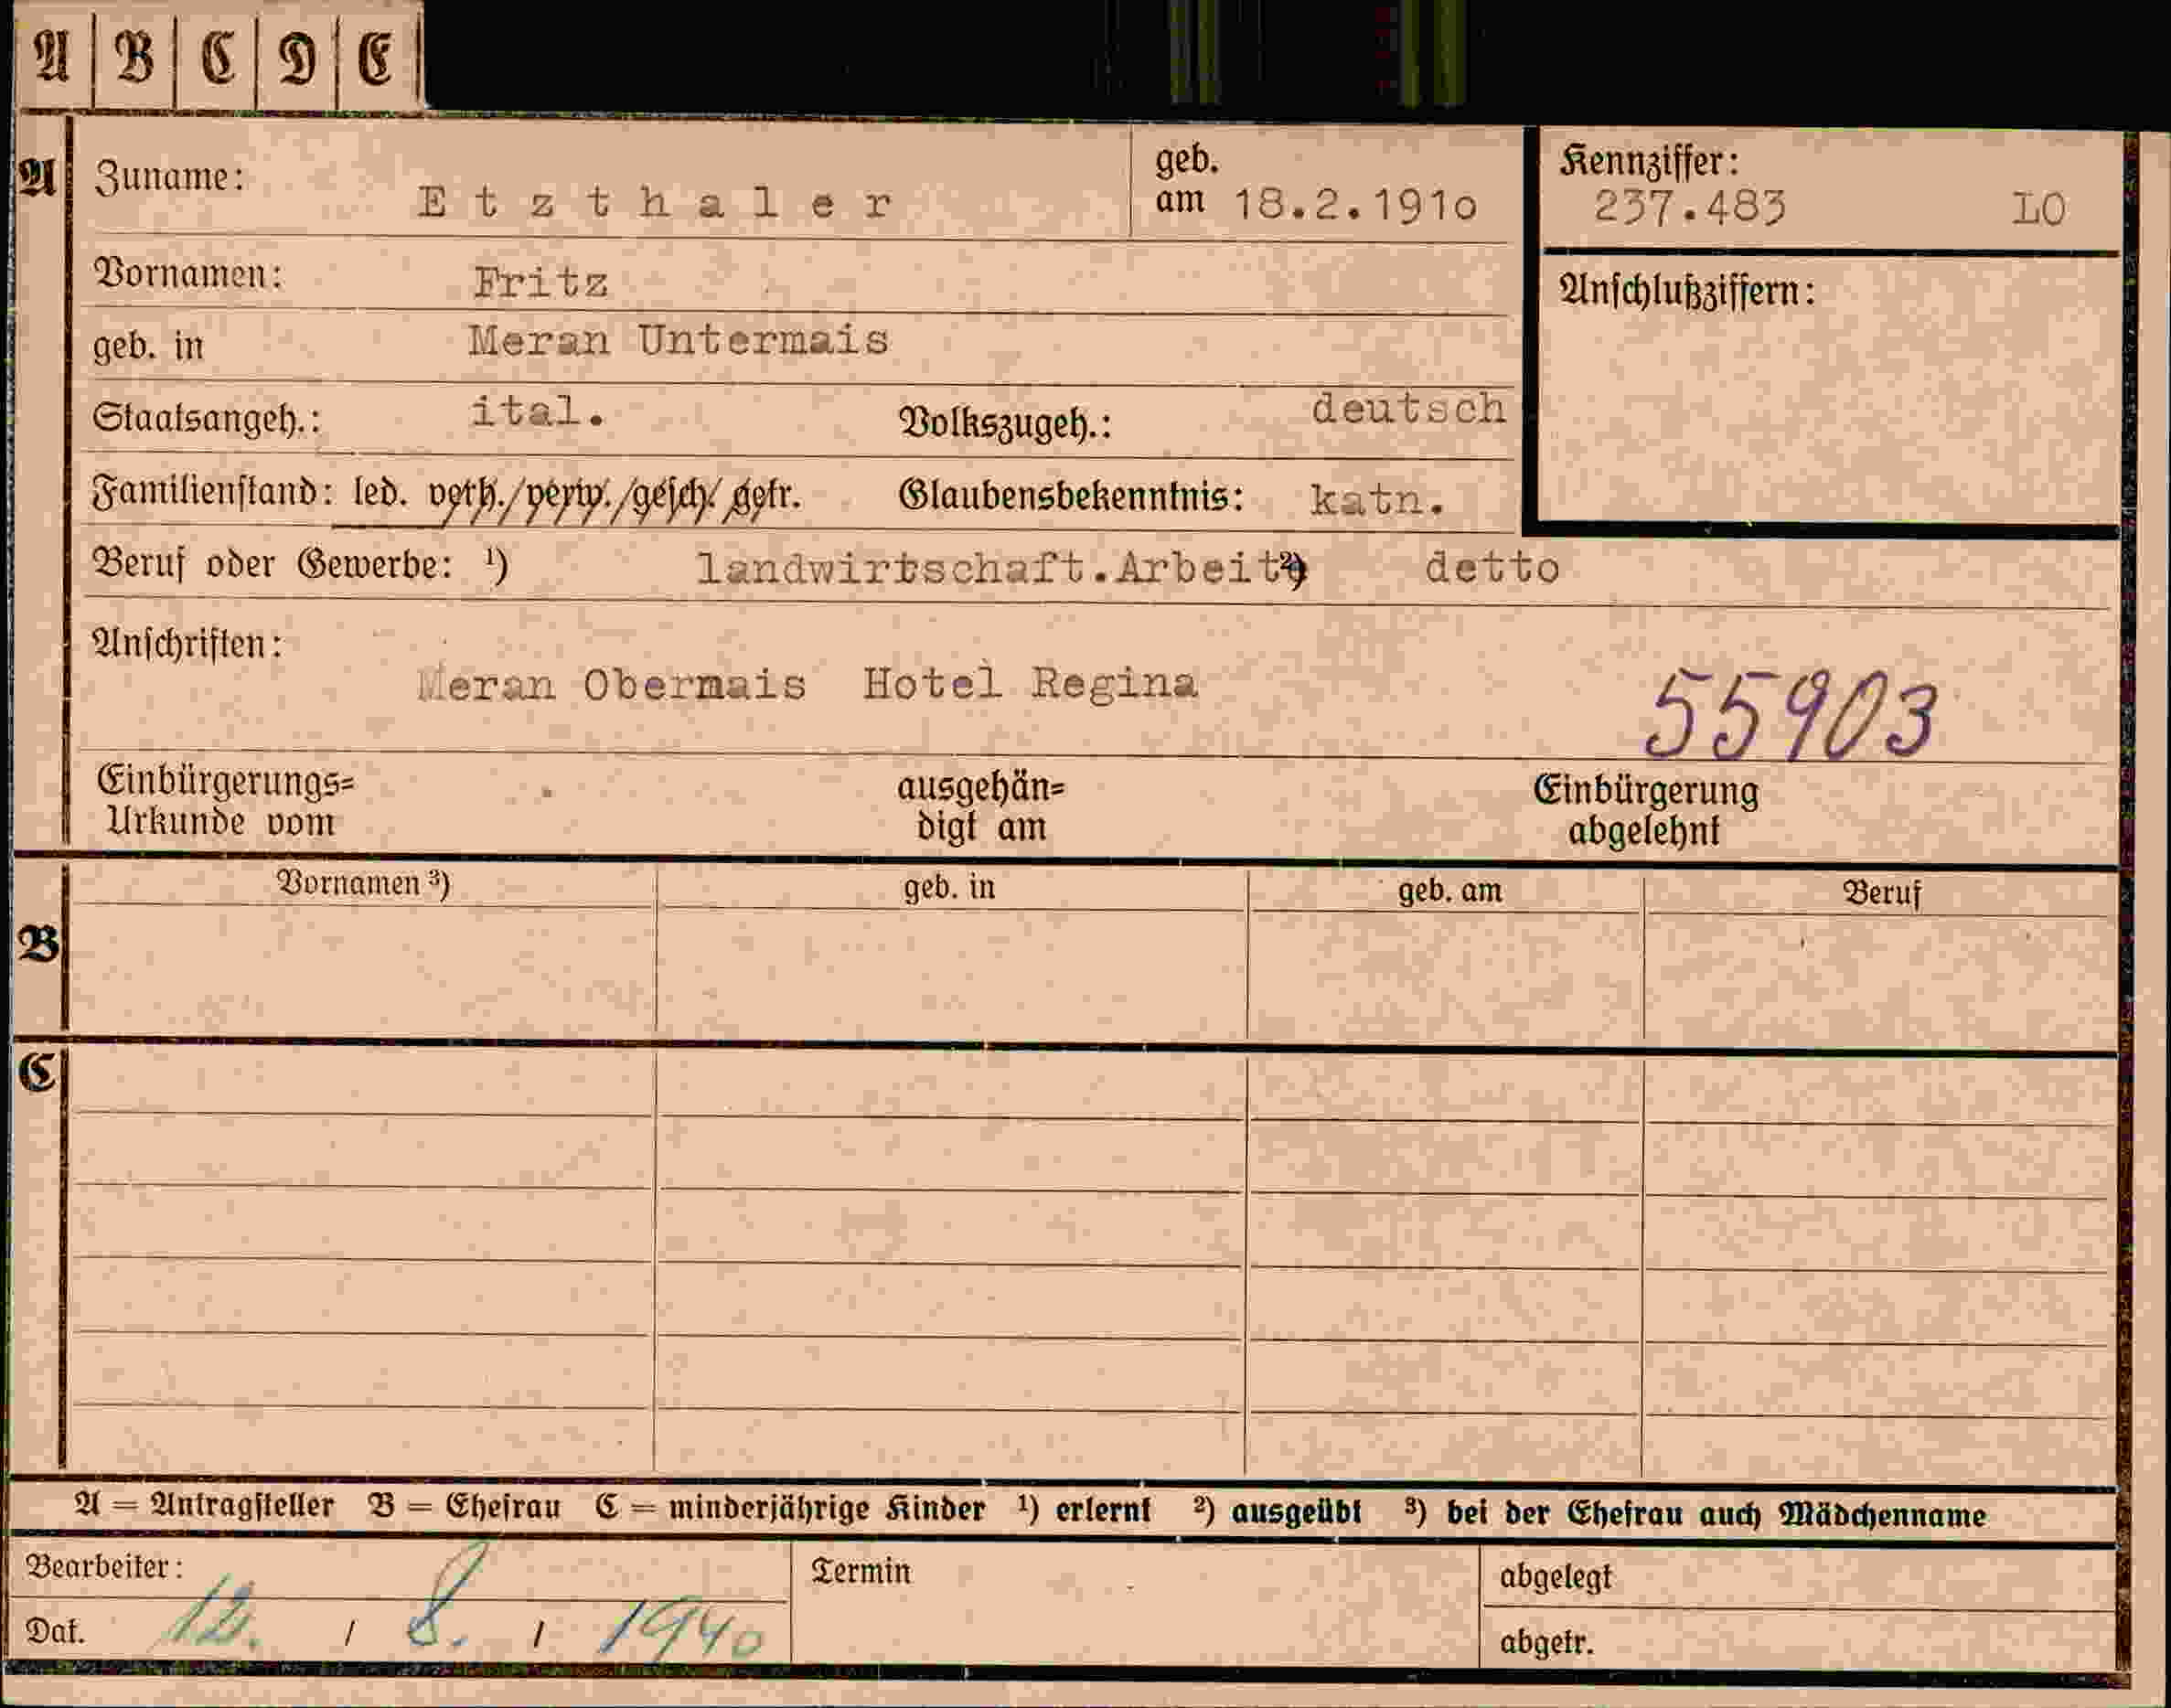 A B C D E
A Zuname: Etzthaler geb. am 18.2.191o Kennziffer: 237.483 LO
Vornamen: Fritz Anschlußziffern:
geb. in Meran Untermais
Staatsangeh.: ital. Volkszugeh.: deutsch
Familienstand: led. verh./verw./gesch./getr. Glaubensbekenntnis: kath.
Beruf oder Gewerbe: ¹) landwirtschaft.Arbeit ²) detto
Anschriften:
Meran Obermais Hotel Regina 55903
Einbürgerungs= ausgehän= Einbürgerung
Urkunde vom digt am abgelehnt
Vornamen ³) geb. in geb. am Beruf
B
C
A = Antragsteller B = Ehefrau C = minderjährige Kinder ¹) erlernt ²) ausgeübt ³) bei der Ehefrau auch Mädchenname
Bearbeiter: Termin abgelegt
Dat. 12. / 8. / 1940 abgetr.